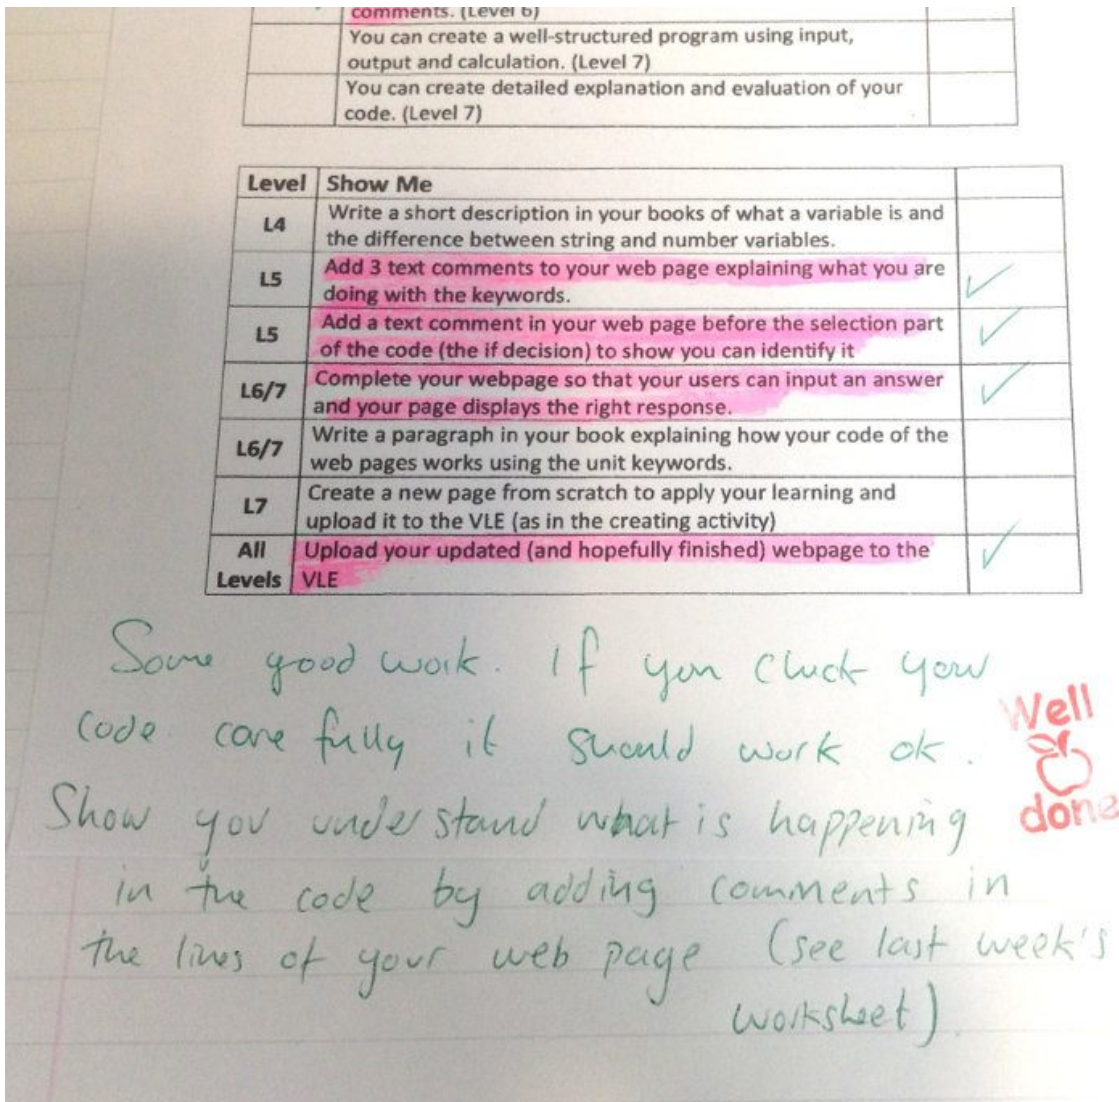 comments. (Level 6)
You can create a well-structured program using input,
output and calculation. (Level 7)
You can create detailed explanation and evaluation of your
code. (Level 7)
Level Show Me
L4 Write a short description in your books of what a variable is and
the difference between string and number variables.
L5 Add 3 text comments to your web page explaining what you are
doing with the keywords.
L5 Add a text comment in your web page before the selection part
of the code (the if decision) to show you can identify it
L6/7 Complete your webpage so that your users can input an answer
and your page displays the right response.
L6/7 Write a paragraph in your book explaining how your code of the
web pages works using the unit keywords.
L7 Create a new page from scratch to apply your learning and
upload it to the VLE (as in the creating activity)
All Levels Upload your updated (and hopefully finished) webpage to the
VLE
Some good work. If you check your
code carefully it should work ok.
Show you understand what is happening
in the code by adding comments in
the lines of your web page (see last week's
worksheet)
Well
done